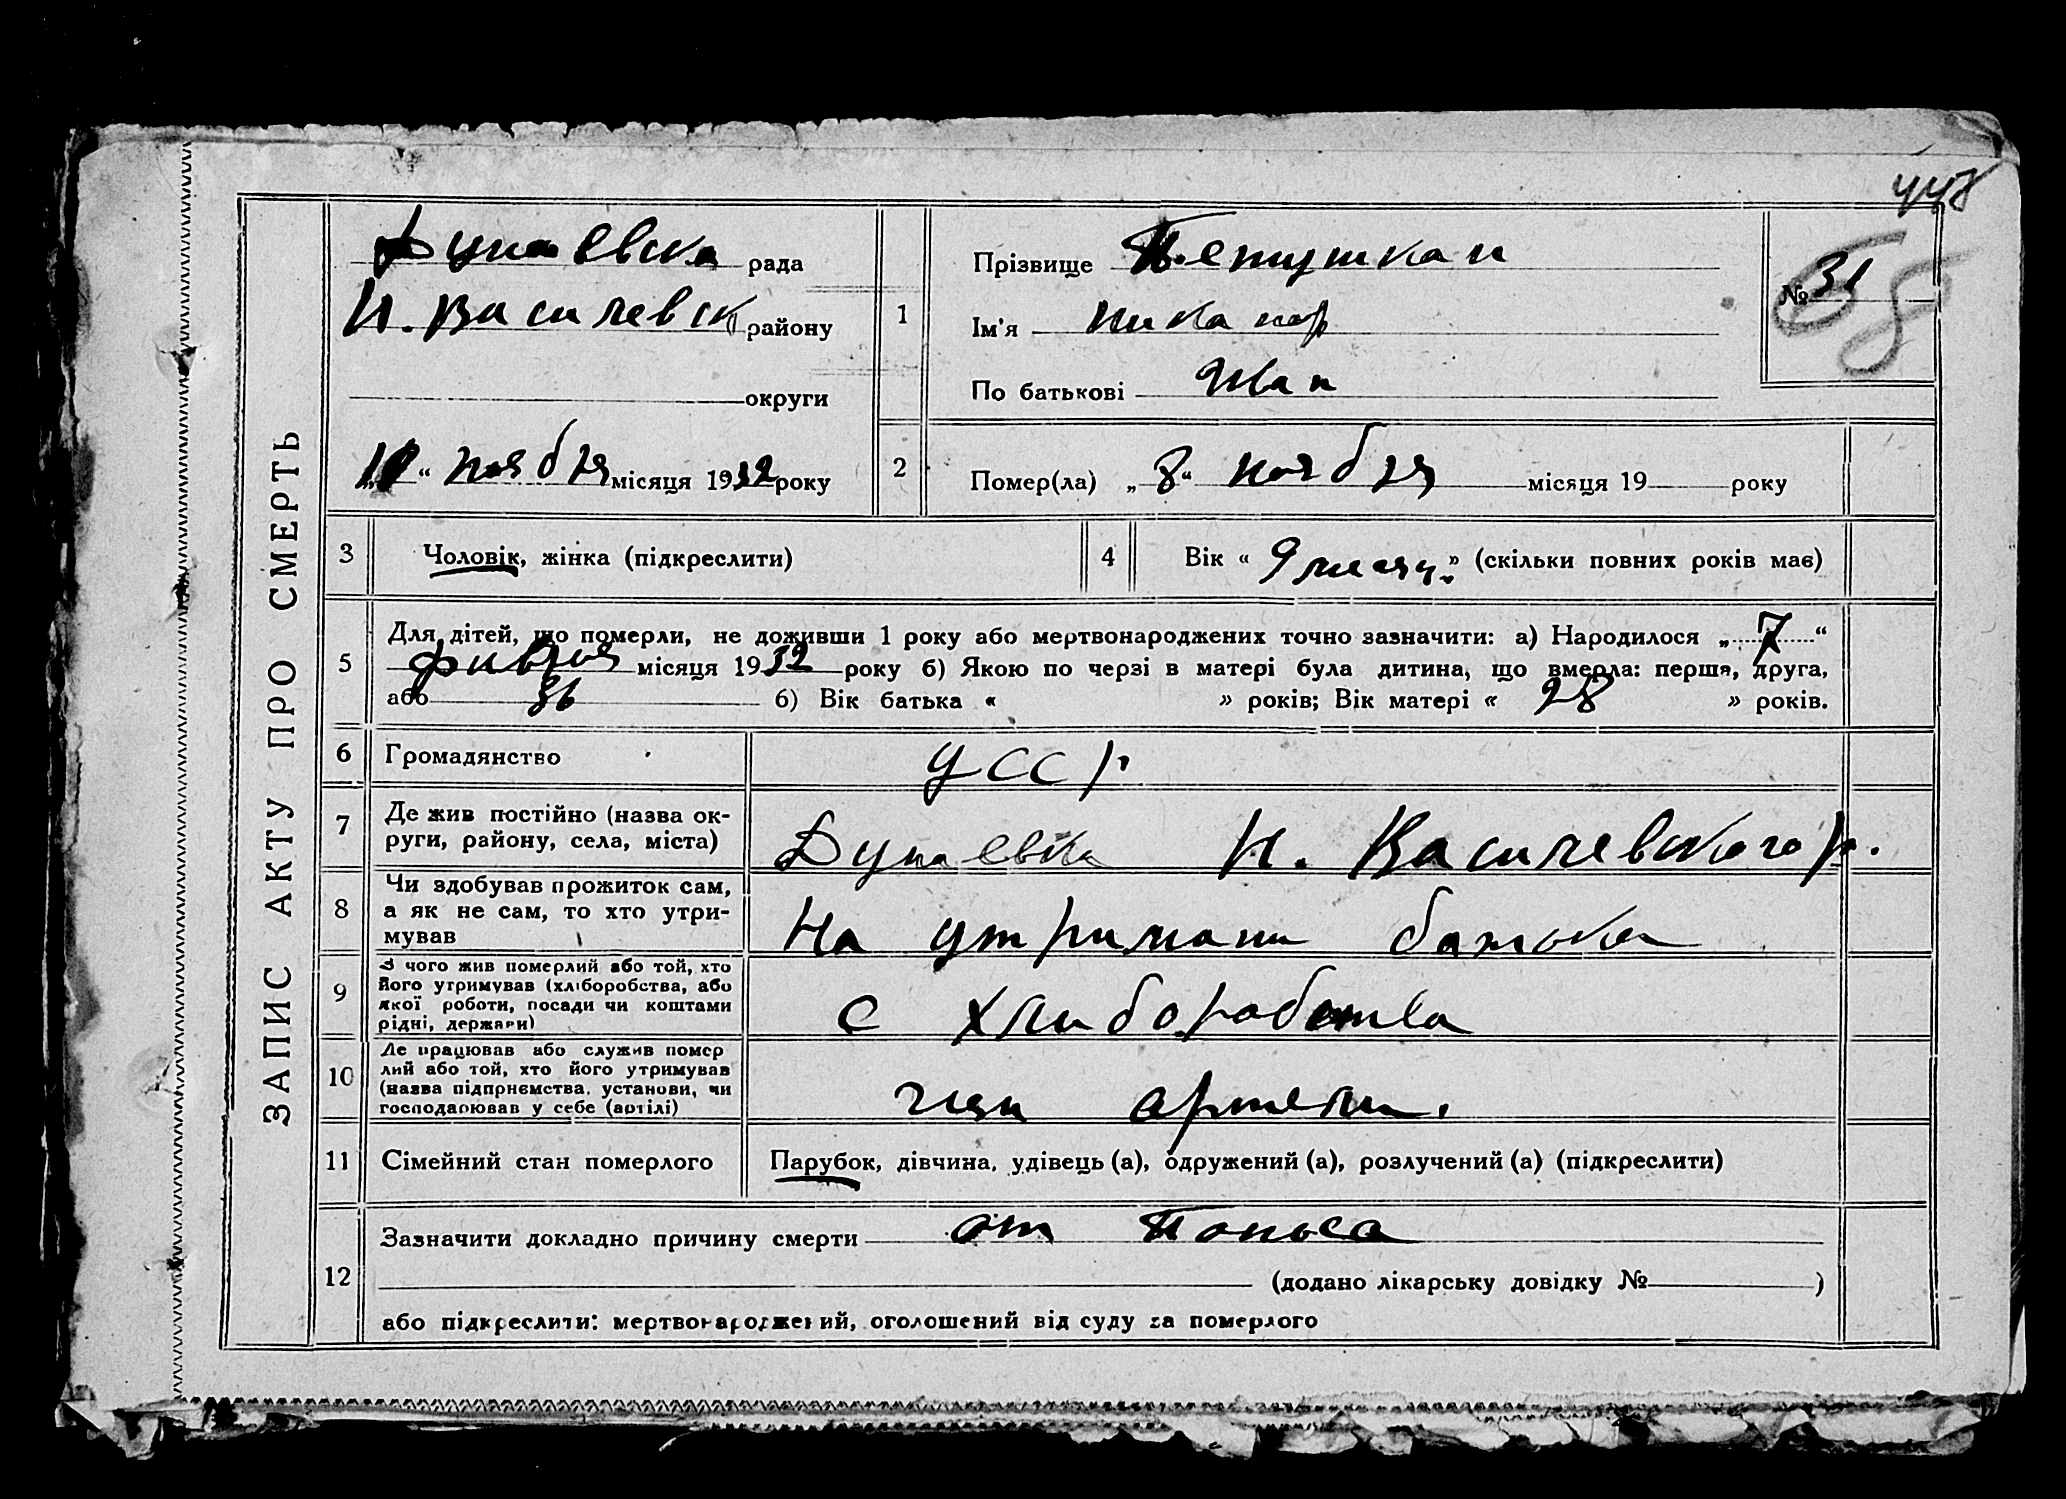 448
ЗАПИС АКТУ ПРО СМЕРТЬ
Дунаевска рада
Н. Василевск району
округи
„10“ ноября місяця 1932 року
1
Прізвище Петушкан
Ім'я Никанор
По батькові Иван
№ 31
8
2
Помер(ла) „8“ ноября місяця 19 року
3
Чоловік, жінка (підкреслити)
4
Вік « 9 месяц. » (скільки повних років має)
5
Для дітей, що померли, не доживши 1 року або мертвонароджених точно зазначити: а) Народилося „7“
місяця 1932 року б) Якою по черзі в матері була дитина, що вмерла: перша, друга,
або 36 б) Вік батька « » років; Вік матері « 28 » років.
6
Громадянство
УССР
7
Де жив постійно (назва ок-
руги, району, села, міста)
Дунаевка Н. Василевского р.
8
Чи здобував прожиток сам,
а як не сам, то хто утри-
мував
На утримани батька
9
З чого жив померлий або той, хто
його утримував (хліборобства, або
якої роботи, посади чи коштами
рідні, держави)
с хлиборобства
10
Де працював або служив помер
лий або той, хто його утримував
(назва підприємства, установи, чи
господарював у себе (артілі)
член артели.
11
Сімейний стан померлого
Парубок, дівчина, удівець (а), одружений (а), розлучений (а) (підкреслити)
12
Зазначити докладно причину смерти от Поноса
(додано лікарську довідку № )
або підкреслити: мертвонароджений, оголошений від суду за померлого